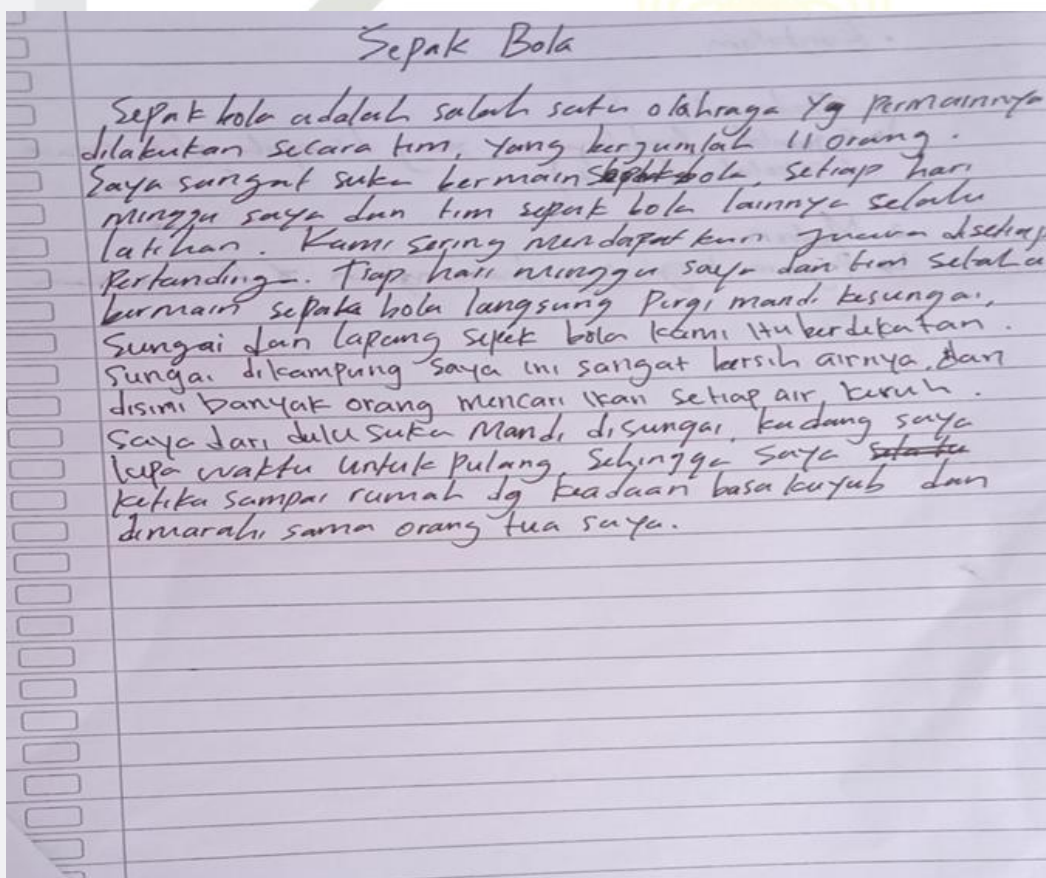 Sepak Bola
Sepak bola adalah salah satu olahraga Yg Permainnya
dilakukan secara tim, Yang berjumlah 11 orang.
Saya sangat suka bermain bola, setiap hari
minggu saya dan tim sepak bola lainnya selalu
latihan. Kami sering mendapatkan juara disetiap
Pertanding. Tiap hari minggu saya dan tim
bermain sepaka bola langsung Pirgi mandi kesungai,
Sungai dan lapang sepek bola kami itu berdekatan.
Sungai dikampung saya ini sangat bersih airnya, dan
disini banyak orang mencari ikan setiap air keruh.
Saya dari dulu suka Mandi disungai, kadang saya
lupa waktu untuk pulang, Sehingga saya
ketika sampai rumah dg keadaan basa kuyub dan
dimarahi sama orang tua saya.